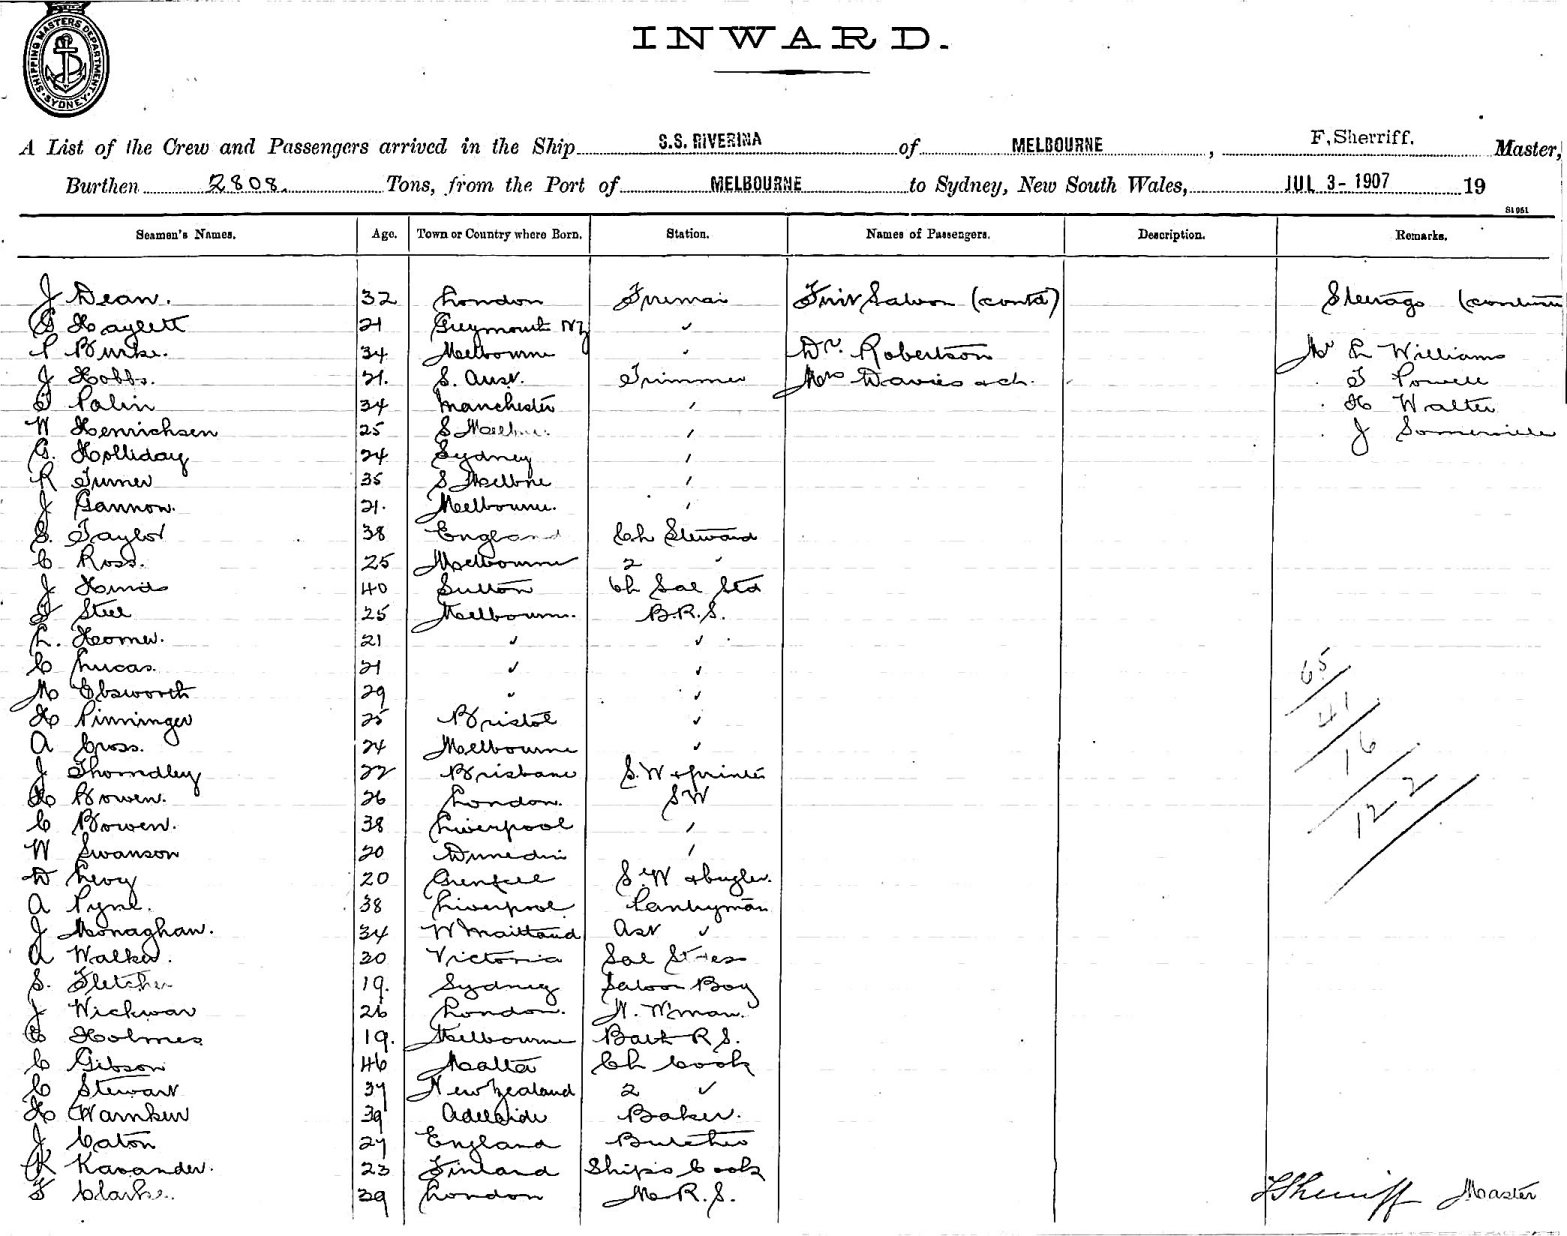 SHIPPING MASTERS DEPARTMENT SYDNEY
INWARD.
A List of the Crew and Passengers arrived in the Ship S.S. RIVERINA of MELBOURNE, F, Sherriff. Master,
Burthen 2808. Tons, from the Port of MELBOURNE to Sydney, New South Wales, JUL 3- 1907 19
S1951
Seamen's Names. Age. Town or Country where Born. Station. Names of Passengers. Description. Remarks.
J Dean. 32 London Firemai First Saloon (contd) Steerage
G Haylett 21 Greymouth NZ ✓
P Burke. 34 Melbourne ✓ Dr. Robertson Mr L Williams
J Hobbs. 21. S. Aust. Trimmer Mrs Davies & ch. T Powell
T Palin 34 Manchester " H Walter
W Henrichsen 25 S Melbne. " J Somerville
G. Holliday 24 Sydney "
R Turner 35 S Melbne "
J Gannon. 21. Melbourne. "
S. Taylor 38 England Ch Steward
C Ross. 25 Melbourne 2 ✓
J Hinds 40 Sutton Ch Sal Std
T Steel 25 Melbourne. B.R.S.
L. Horner. 21 ✓ ✓
C Lucas. 21 ✓ ✓
M Ebsworth 29 ✓ ✓
H Pinninger 25 Bristol ✓
A Cross. 24 Melbourne ✓
J Thorndley 22 Brisbane S.W & printer
H Bowen. 26 London. SW
C Bowen. 38 Liverpool "
W Swanson 20 Dunedin "
D Levy 20 Grenfell S.W & bugler.
A Pyne. 38 Liverpool Pantryman
J Monaghan. 34 W Maitland Asst ✓
A Walker. 30 Victoria Sal St-ess
S. Fletcher 19. Sydney Saloon Boy
J Wickwar 26 London. N. W'man.
C Holmes 19. Melbourne Bath R S.
C Gibson 46 Malta Ch Cook
C Stewart 37 New Zealand 2 ✓
H Warnken 39 Adelaide Baker.
J Caton 27 England Butcher
K Kavander. 23 Finland Ships Cook
T Clarke. 39 London M.R.S.
65
41
16
122
F Sherriff Master